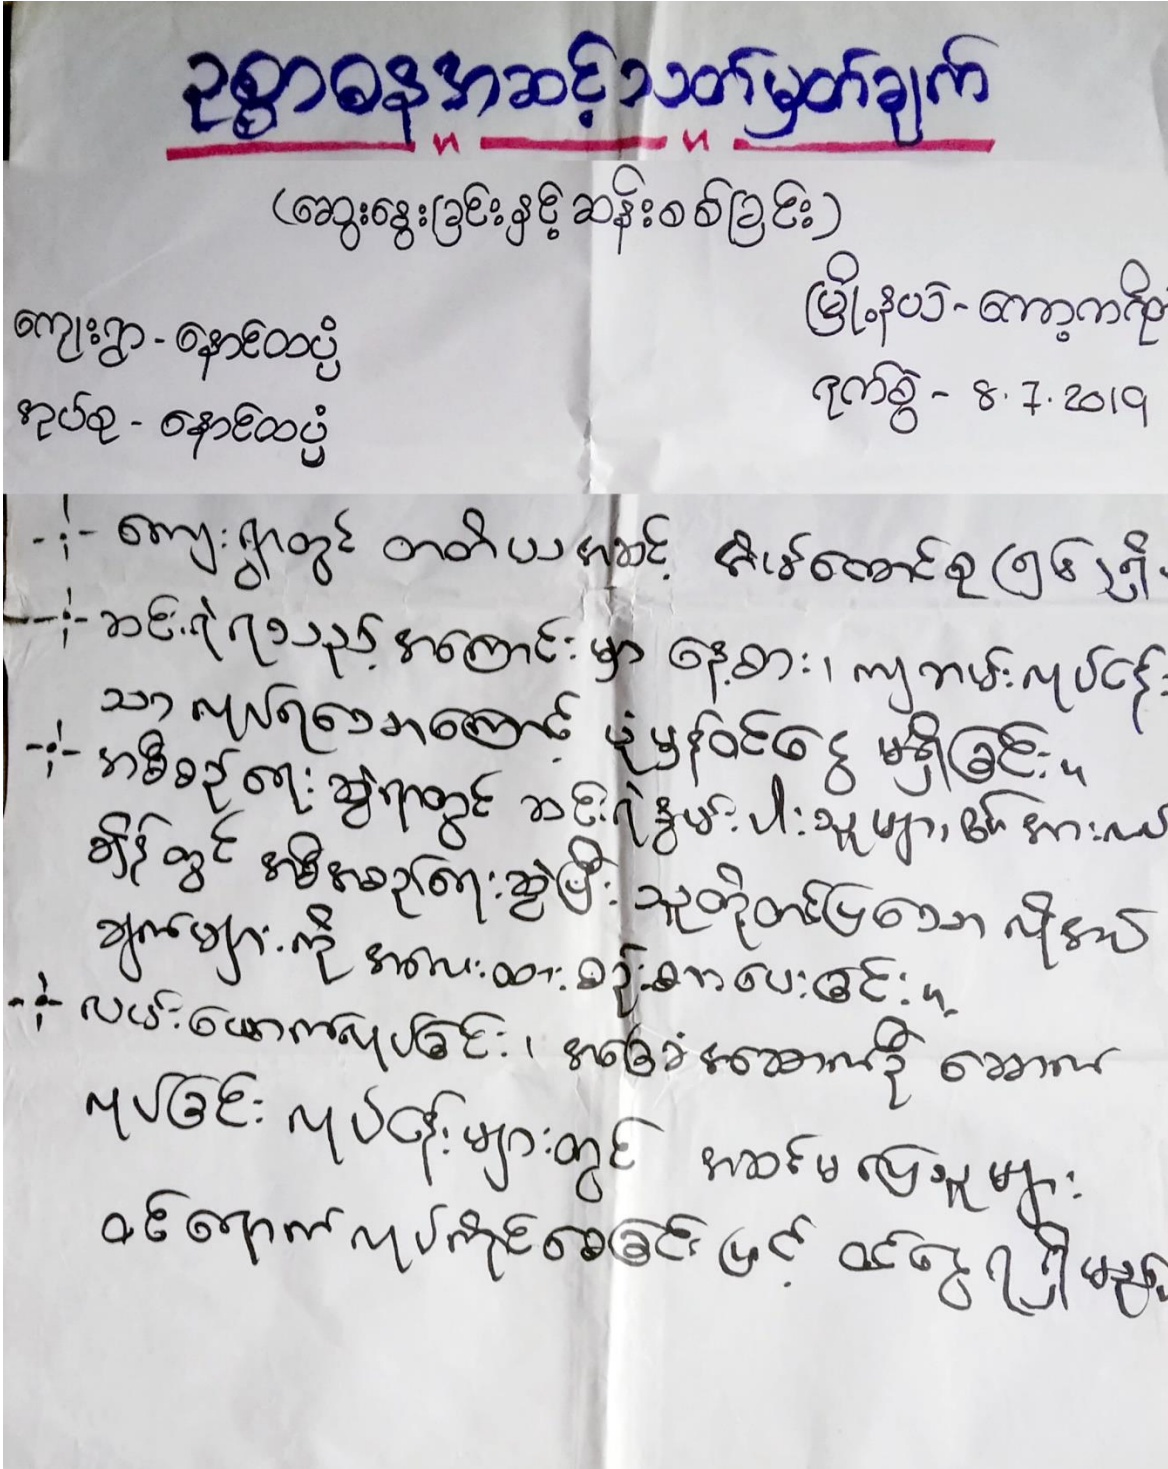 ဥစ္စာဓနအဆင့်သတ်မှတ်ချက်
(ဆွေးနွေးခြင်းနှင့်ဆန်းစစ်ခြင်း)
မြို့နယ် - ကော့ကရိတ်
ကျေးရွာ - နောင်တပွံ့
ရက်စွဲ - 8.7.2019
အုပ်စု - နောင်တပွံ့
ကျေးရွာတွင် တတိယအဆင့် အိမ်ထောင်စု
ဆင်းရဲရသည့်အကြောင်းမှာ နေ့စား၊ ကျဘမ်းလုပ်ငန်း
သာ လုပ်ရသောကြောင့် ပုံမှန်ဝင်ငွေ မရှိခြင်း။
အစီစဉ်ရေးဆွဲရာတွင် ဆင်းရဲနွမ်းပါးသူများ အားလပ်
ချိန်တွင် အစီအစဉ်ရေးဆွဲပြီး သူတို့တင်ပြသော လိုအပ်
ချက်များကို အလေးထားစဉ်းစားပေးခြင်း။
လမ်းဖောက်လုပ်ခြင်း၊ အခြေခံအဆောက်အဦ ဆောက်
လုပ်ခြင်း လုပ်ငန်းများတွင် အဆင်မပြေသူများ
ဝင်ရောက်လုပ်ကိုင်စေခြင်းဖြင့် ဝင်ငွေရရှိမည်